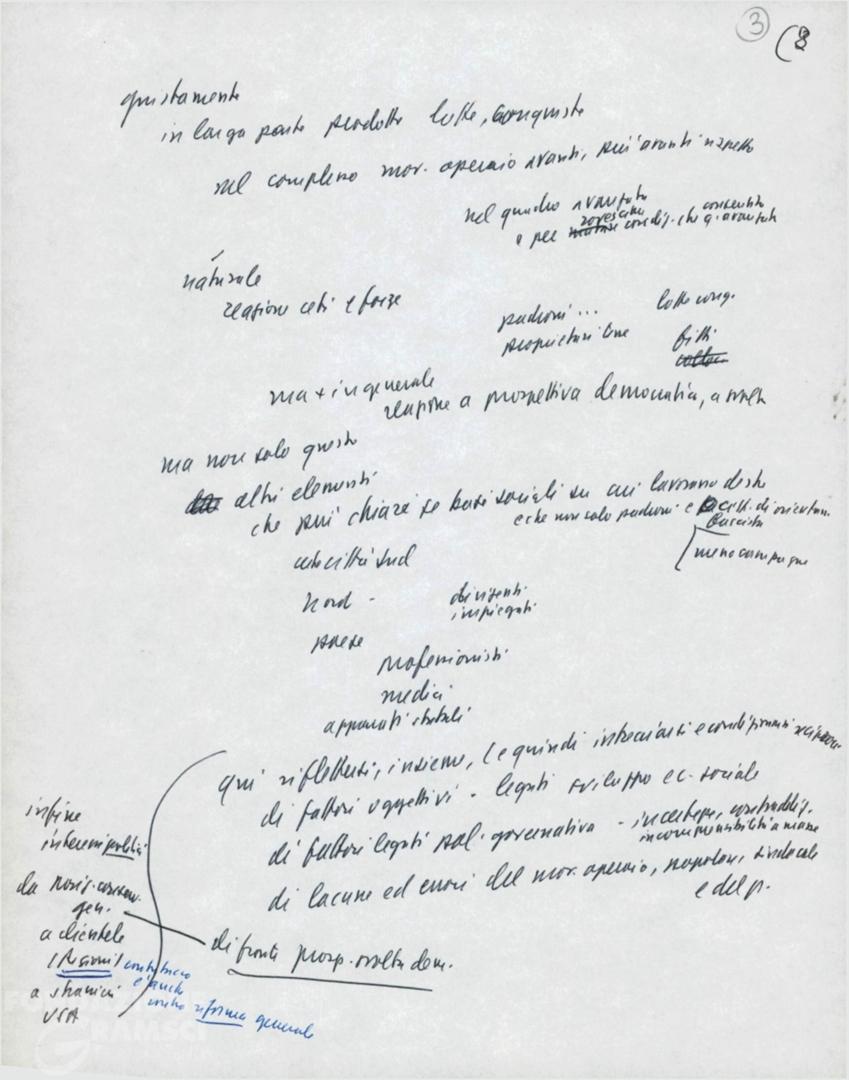 3
(8
giustamente
in larga parte prodotto lotte, conquiste
nel complesso mov. operaio avanti, più avanti rispetto
nel quadro avanzato
e per condiz. che q. avanzata
naturale
reazione ceti e forze
padroni ... lotte conq.
proprietari fitti
ma + in generale
reazione a prospettiva democratica, a svolta
ma non solo questo
altri elementi
che più chiare se basi sociali su cui lavorano destre
e che non solo padroni e di orientam.
fascista
meno campagne
città sud
Nord - dirigenti
impiegati
paese
professionisti
medici
apparati statali
qui riflettersi, insieme, (e quindi intrecciarsi e condizionarsi
di fattori oggettivi - legati sviluppo ec. sociale
di fattori legati pol. governativa - incertezze, contraddiz.
incomprensibilità a masse
di lacune ed errori del mov. operaio, popolare, sindacale
e del p.
infine
interessi politici
da posiz. conserv.
gen.
a clientele
(Regioni) contributo
a stranieri e anche
USA contro riforma generale
di fronte prosp. svolta dem.